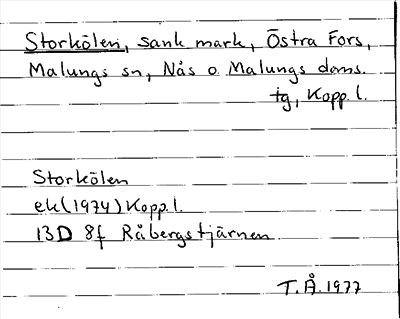 Storkölen, sank mark, Östra Fors,
Malungs sn, Nås o. Malungs doms.
tg, Kopp. l.
Storkölen
ek (1974) Kopp. l.
13D 8f Råbergstjärnen
T.Å. 1977